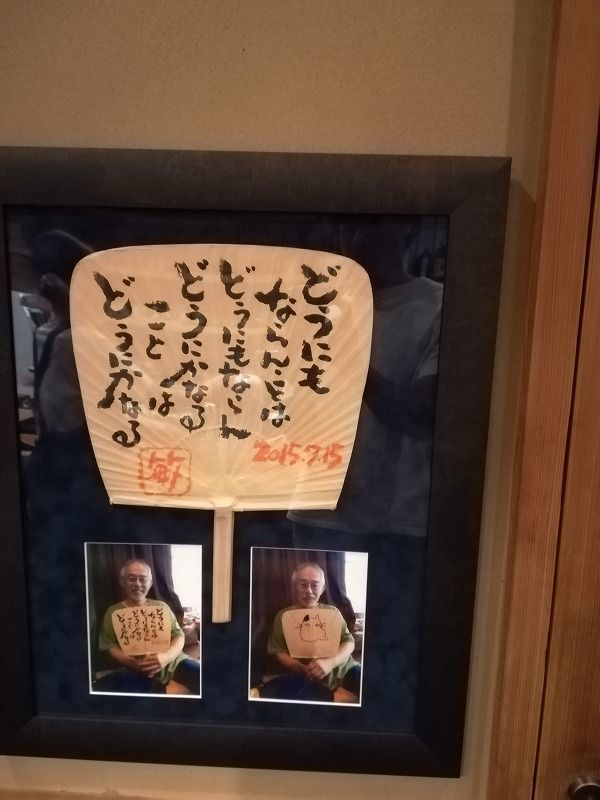 どうにも
ならんことは
どうにもならん
どうにかなる
ことは
どうにかなる
2015.7.15
敏